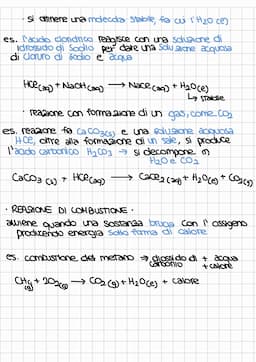 · si ottiene una molecola stabile, fra cui l'H₂O (l)
es. l'acido cloridrico reagisce con una soluzione di
idrossido di sodio per dare una soluzione acquosa
di cloruro di sodio e acqua
HCl(aq) + NaOH(aq) → NaCl(aq) + H₂O(l)
↳ stabile
· reazione con formazione di un gas, come CO₂
es. reazione fra CaCO₃(s) e una soluzione acquosa
HCl, oltre alla formazione di un sale, si produce
l'acido carbonico H₂CO₃ → si decompone in
H₂O e CO₂
CaCO₃(s) + HCl(aq) → CaCl₂(aq) + H₂O(l) + CO₂(g)
· REAZIONE DI COMBUSTIONE ·
avviene quando una sostanza brucia con l'ossigeno
producendo energia sotto forma di calore
es. combustione del metano → diossido di + acqua
carbonio + calore
CH₄(g) + 2O₂(g) → CO₂(g) + H₂O(l) + calore